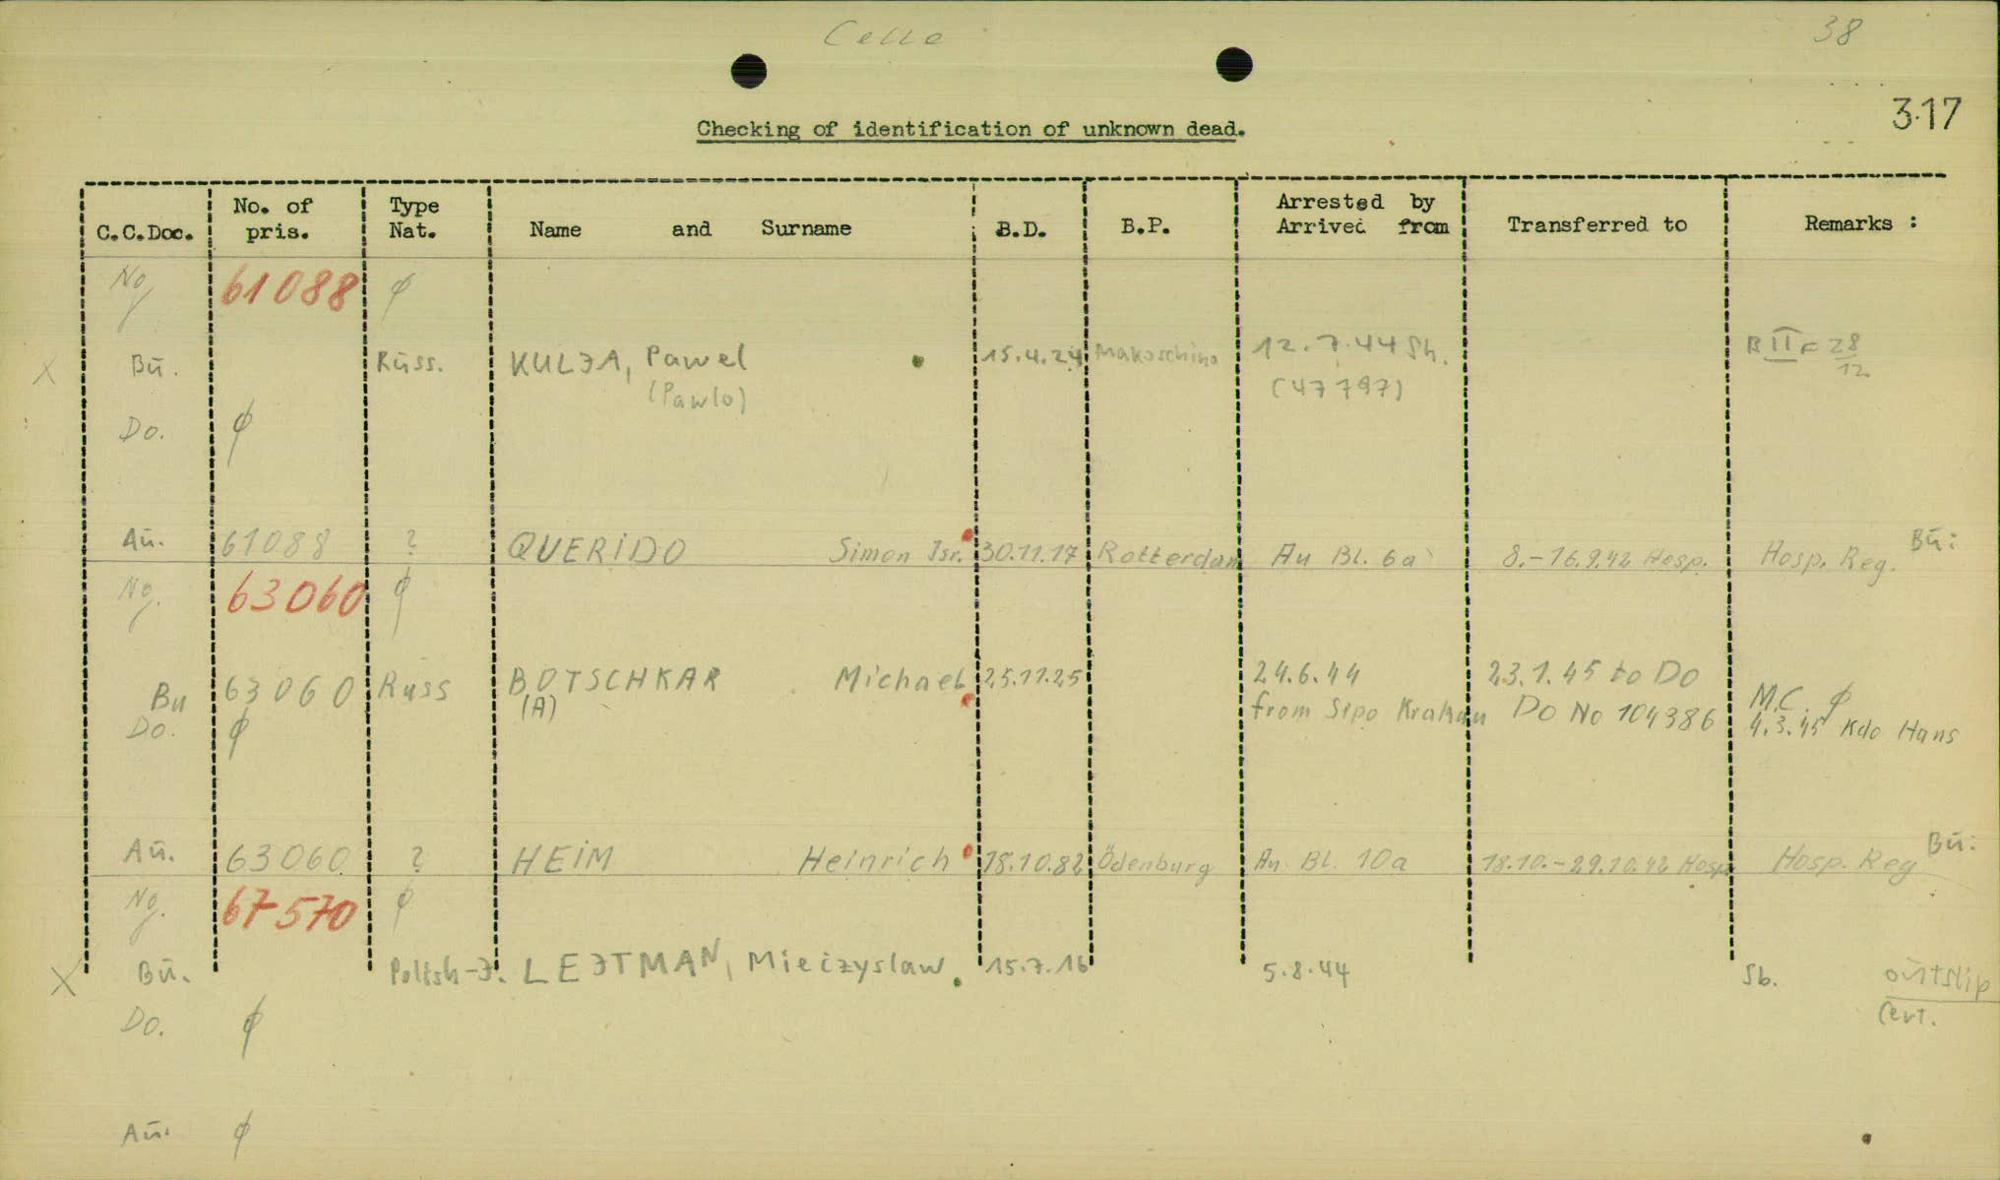 Celle
38
317
Checking of identification of unknown dead.
C.C.Doc. No. of pris. Type Nat. Name and Surname B.D. B.P. Arrested by Arrived from Transferred to Remarks :
Ng 61088 ϕ
X Bū. Rūss. KULJA, Pawel 15.4.24 Makoschino 12.7.44 Sh. B II F 28/12
(Pawlo) (47797)
Do. ϕ
Aū. 61088 ? QUERIDO Simon Isr. 30.11.17 Rotterdam Au Bl. 6a 8.-16.9.42 Hosp. Hosp. Reg. Bū:
Ng. 63060 ϕ
Bu 63060 Russ BOTSCHKAR Michael 25.11.25 24.6.44 23.1.45 to Do M.C. ϕ
(A) from Sipo Krakau Do No 104386 4.3.45 Kdo Hans
Do. ϕ
Aū. 63060 ? HEIM Heinrich 18.10.82 Ödenburg Au Bl. 10a 18.10.-29.10.42 Hosp Hosp. Reg Bū:
Ng. 67570 ϕ
X Bū. Poltsh-J. LEJTMAN, Mieczyslaw 15.7.16 5.8.44 Sb. oūtslip
Cert.
Do. ϕ
Aū. ϕ